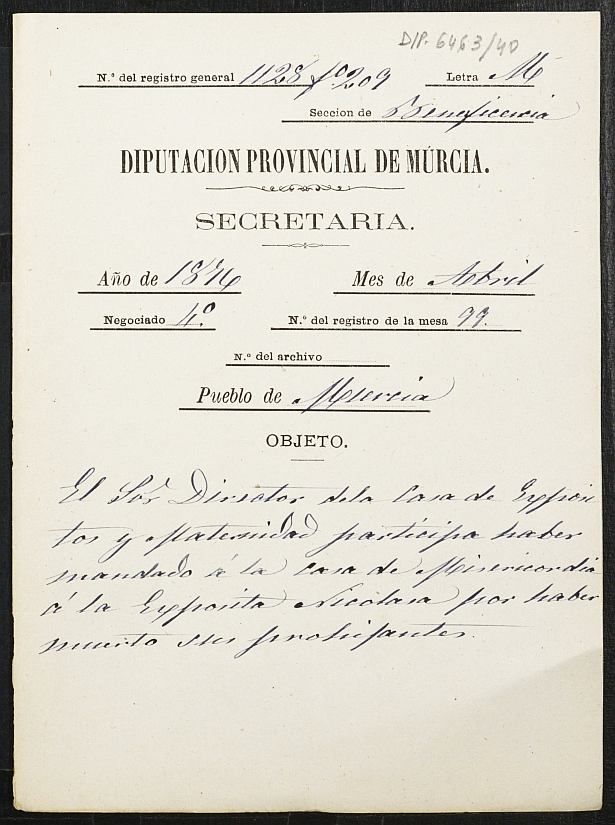 DIP. 6463/40
N.º del registro general 1128 fº 209 Letra M
Seccion de Beneficencia
DIPUTACION PROVINCIAL DE MÚRCIA.
SECRETARIA.
Año de 1876 Mes de Abril
Negociado 4.º N.º del registro de la mesa 99.
N.º del archivo
Pueblo de Murcia
OBJETO.
El Sor Director dela Casa de Expósi-
tos y Maternidad participa haber
mandado á la Casa de Misericordia
á la Expósita Nicolasa por haber
muerto sus prohijantes.